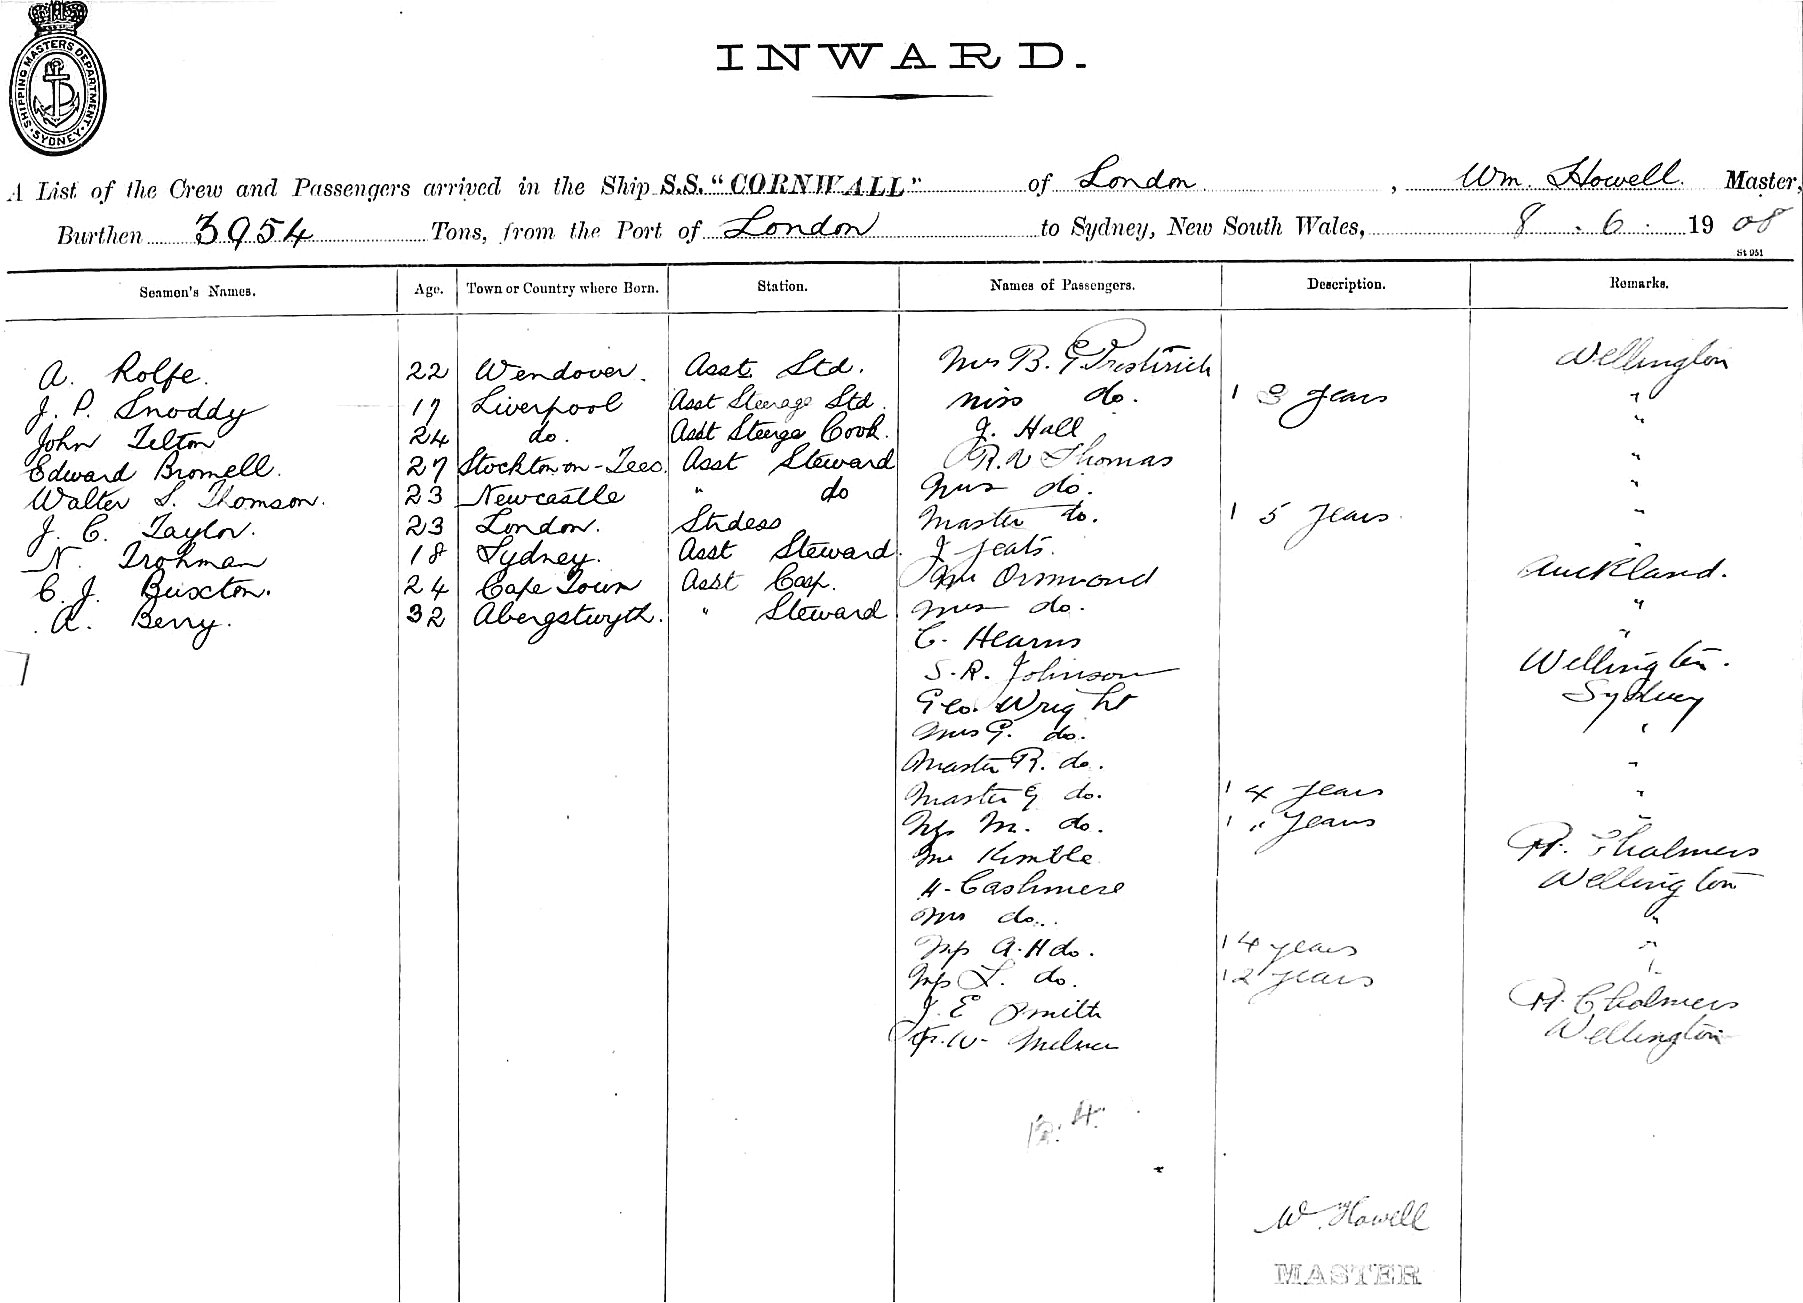 SHIPPING MASTERS DEPARTMENT
SYDNEY
INWARD.
A List of the Crew and Passengers arrived in the Ship S.S. "CORNWALL" of London, Wm. Howell. Master,
Burthen 3954 Tons, from the Port of London to Sydney, New South Wales, 8 . 6 . 1908
St 951
Seamen's Names. Age. Town or Country where Born. Station. Names of Passengers. Description. Remarks.
A. Rolfe. 22 Wendover. Asst Std. Mrs B. G. Wellington
J. P. Snoddy 17 Liverpool Asst Steerage Std. Miss do. 1 3 years "
John Telton 24 do. Asst Steerge Cook. J. Hall "
Edward Bromell. 27 Stockton on-Tees. Asst Steward R. W Thomas "
Walter S. Thomson. 23 Newcastle " do Mrs do. "
J. C. Taylor. 23 London. Strdess Master do. 1 5 years "
N. Trohman 18 Sydney. Asst Steward. J Jeats. "
C. J. Buxton. 24 Cape Town Asst Casp. Mr Ormond Auckland.
A. Berry. 32 Abergstwyth. " Steward Mrs do. "
C. Hearns "
S. R. Johnson Wellington.
Geo. Wright Sydney
Mrs G. do. "
Master R. do. "
Master G do. 1 4 years "
M. do. 1 " years "
Mr Kimble P. Chalmers
H. Cashmere Wellington
Mrs do. "
A. H do. 1 4 years "
L. do. 1 2 years "
J. E Smith P. Chalmers
W. Milner Wellington
W. Howell
MASTER